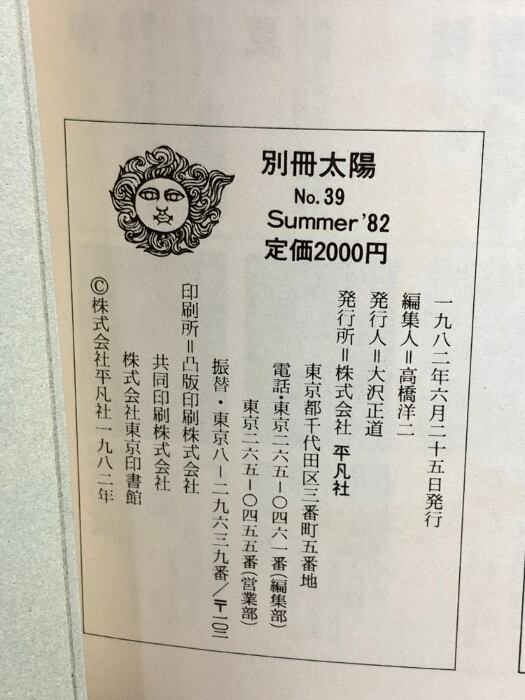 別冊太陽
No. 39
Summer '82
定価2000円
一九八二年六月二十五日発行
編集人＝高橋洋二
発行人＝大沢正道
発行所＝株式会社 平凡社
東京都千代田区三番町五番地
電話・東京二六五−〇四六一番(編集部)
東京二六五−〇四五五番(営業部)
振替・東京八−二九六三九番／〒一〇二
印刷所＝凸版印刷株式会社
共同印刷株式会社
株式会社東京印書館
©株式会社平凡社一九八二年